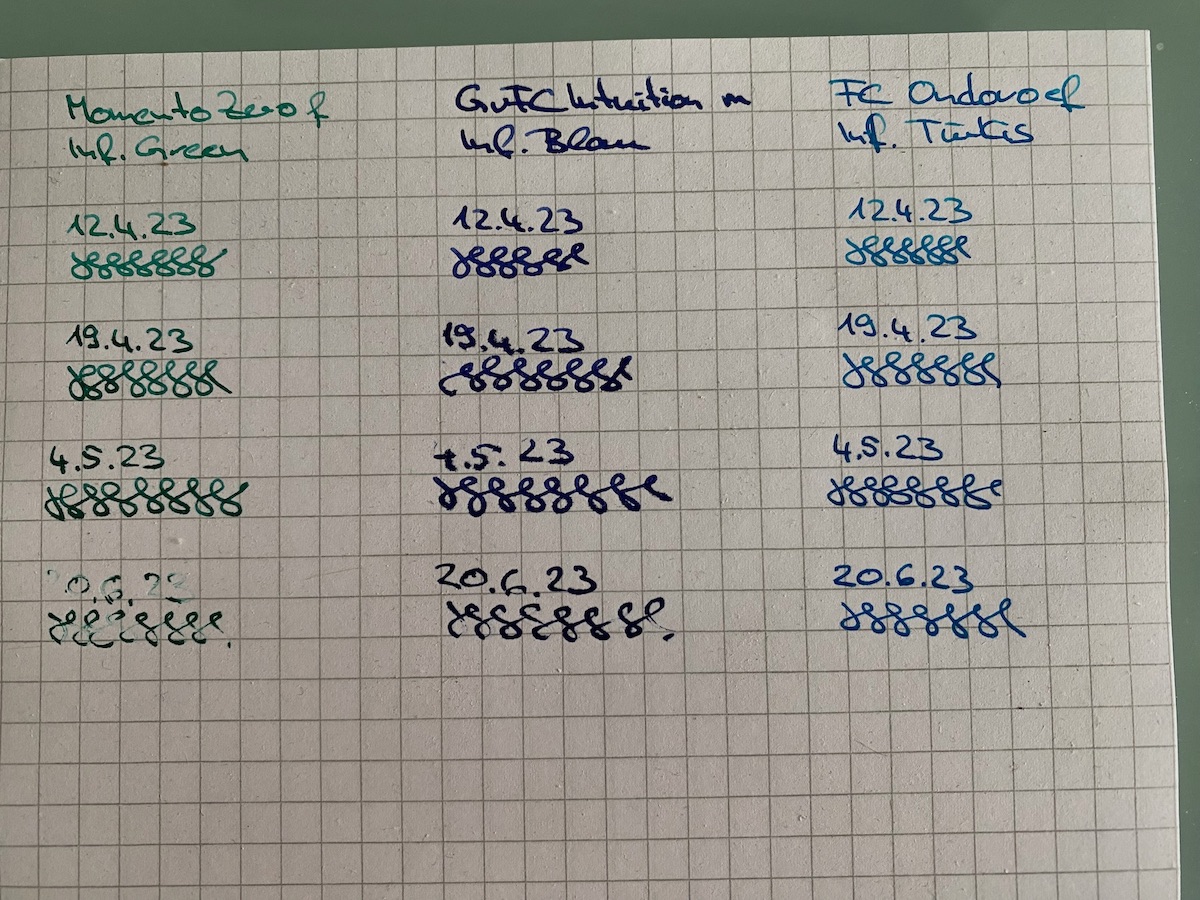 Momento Zero f
Inf. Green
12.4.23
19.4.23
4.5.23
20.6.23
GvFC Intuition m
Inf. Blau
12.4.23
19.4.23
4.5. 23
20.6.23
FC Ondoro ef
Inf. Türkis
12.4.23
19.4.23
4.5.23
20.6.23